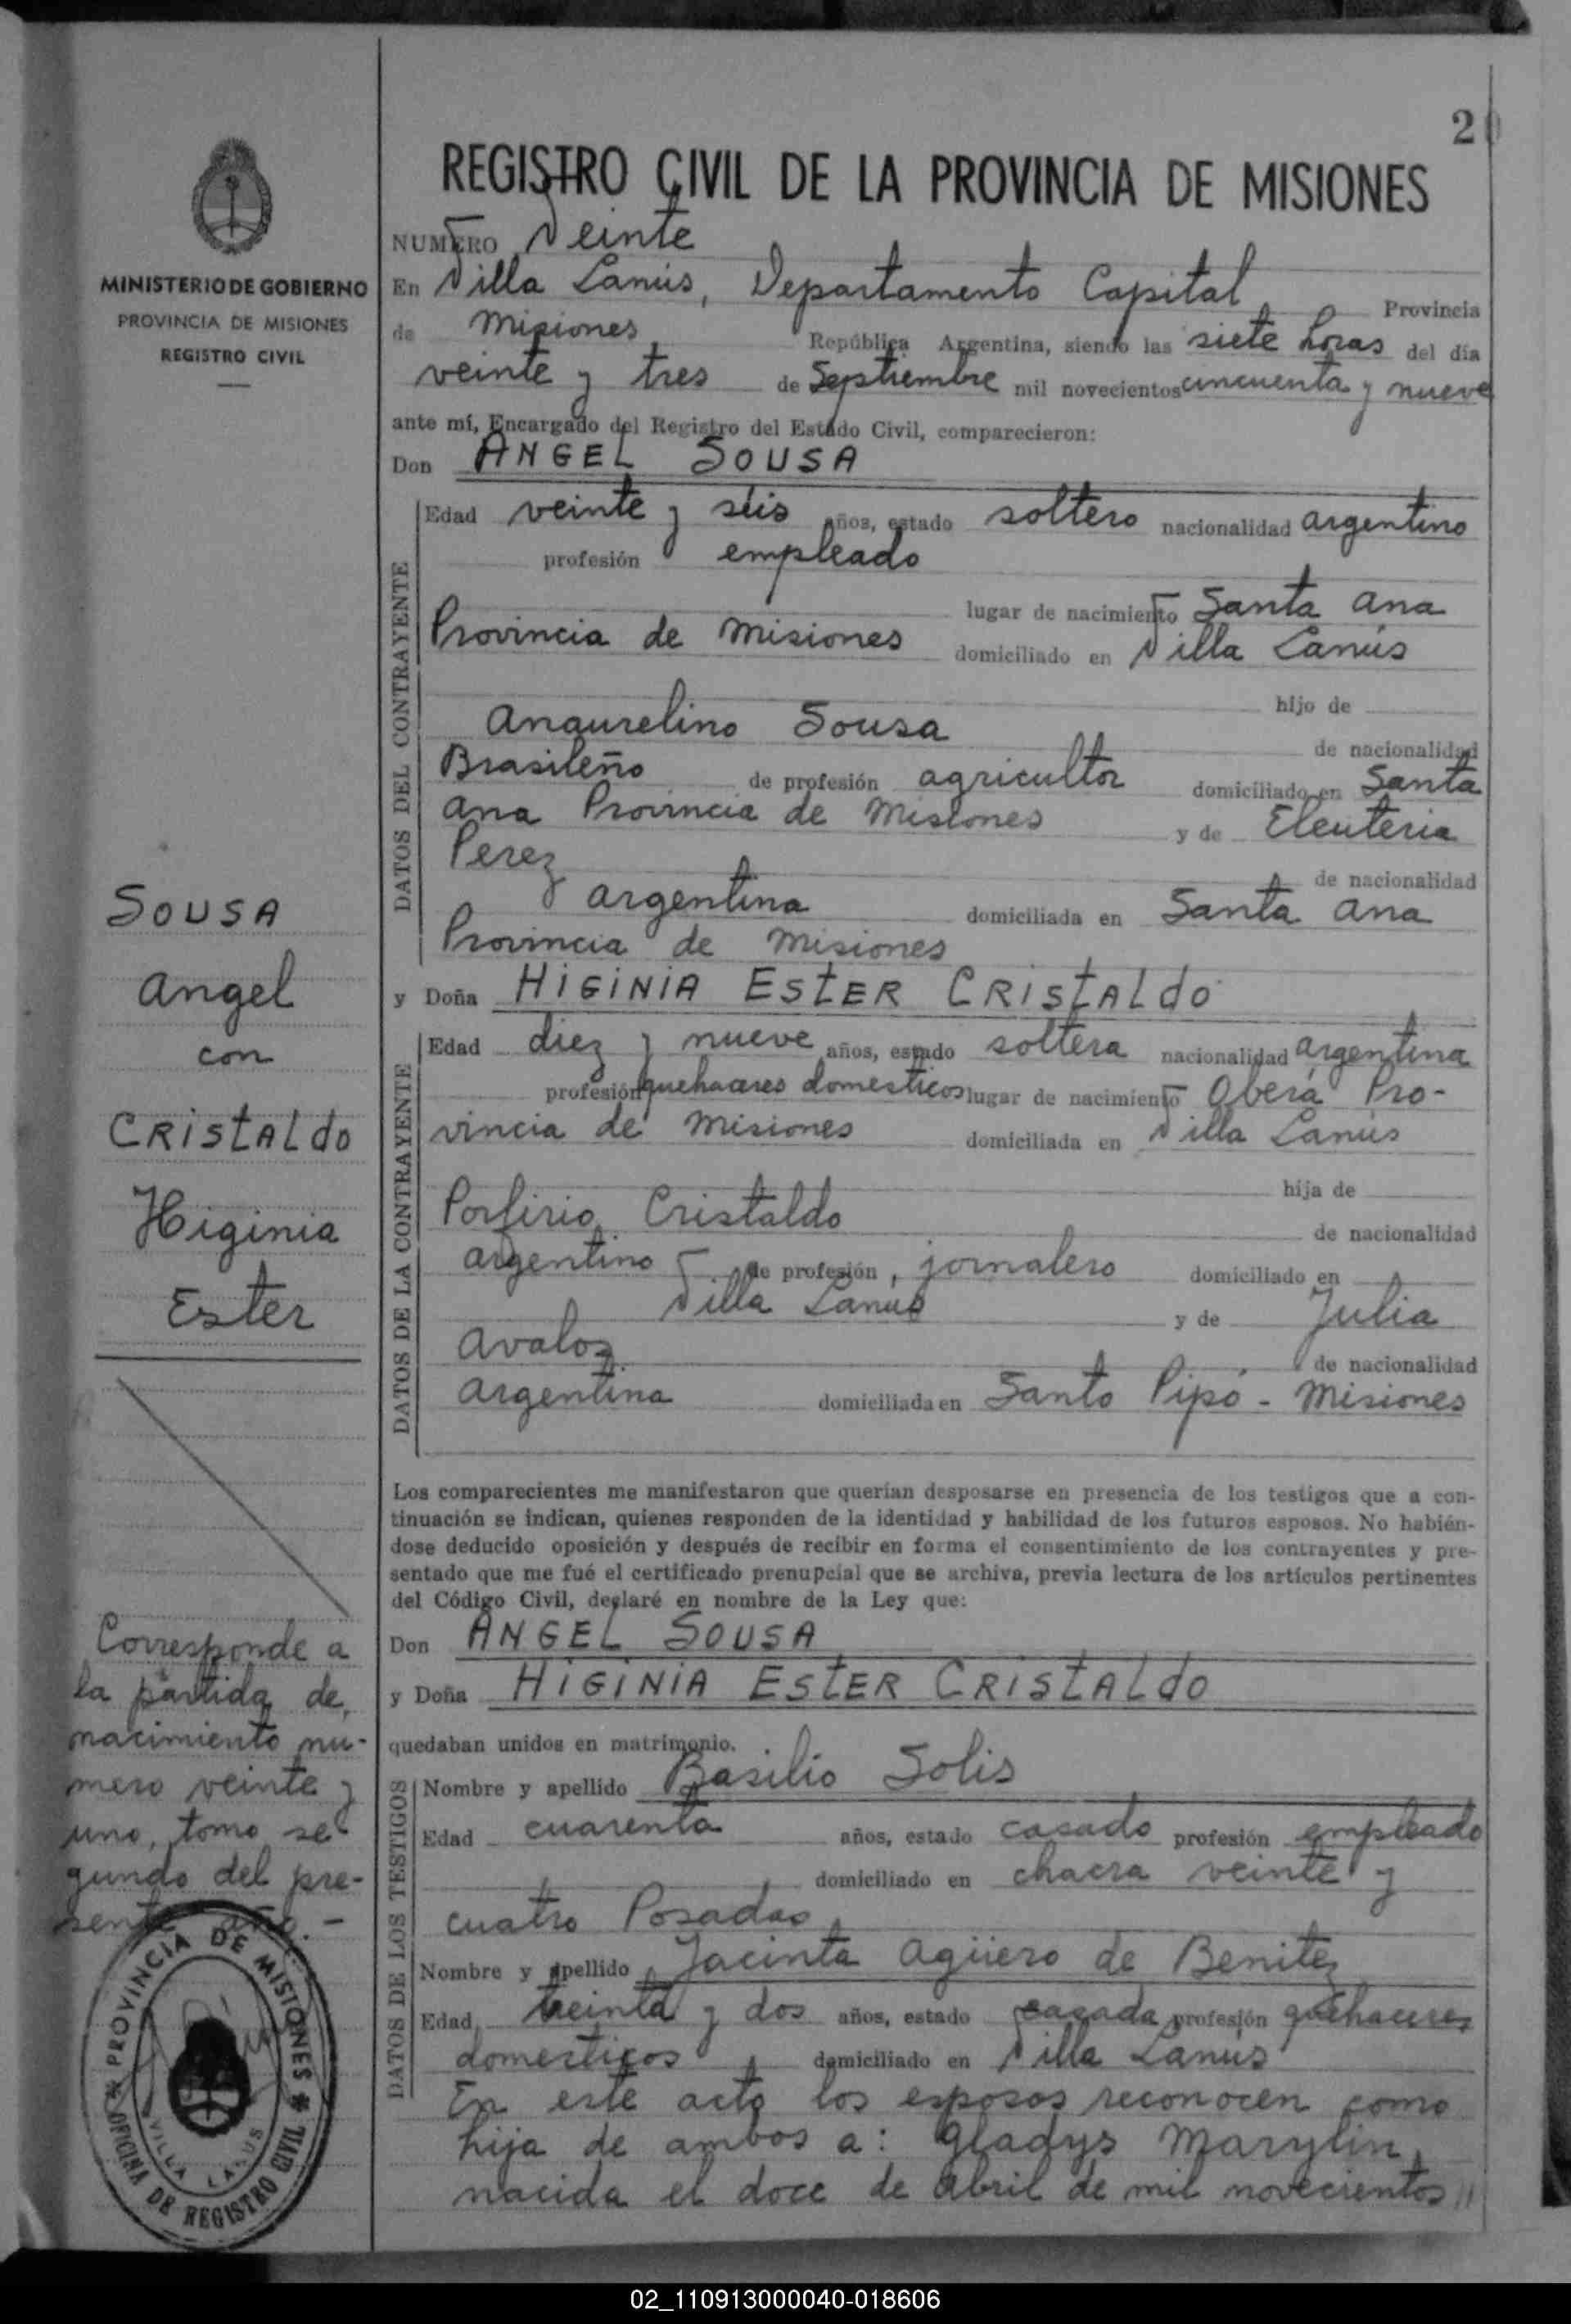 20
REGISTRO CIVIL DE LA PROVINCIA DE MISIONES
MINISTERIO DE GOBIERNO
PROVINCIA DE MISIONES
REGISTRO CIVIL
NUMERO Veinte
En Villa Lanús, Departamento Capital Provincia
de Misiones República Argentina, siendo las siete horas del día
veinte y tres de Septiembre mil novecientos cincuenta y nueve
ante mí, Encargado del Registro del Estado Civil, comparecieron:
Don ANGEL SOUSA
DATOS DEL CONTRAYENTE
Edad veinte y séis años, estado soltero nacionalidad argentino
profesión empleado
lugar de nacimiento Santa Ana
Provincia de Misiones domiciliado en Villa Lanús
hijo de
Anaurelino Sousa
de nacionalidad
Brasileño de profesión agricultor domiciliado en Santa
Ana Provincia de Misiones y de Eleuteria
Perez
de nacionalidad
argentina domiciliada en Santa Ana
Provincia de Misiones
y Doña HIGINIA ESTER CRISTALDO
DATOS DE LA CONTRAYENTE
Edad diez y nueve años, estado soltera nacionalidad argentina
profesión quehaceres domesticos lugar de nacimiento Oberá Pro-
vincia de Misiones domiciliada en Villa Lanús
hija de
Porfirio Cristaldo
de nacionalidad
argentino de profesión, jornalero domiciliado en
Villa Lanús y de Julia
Avalos
de nacionalidad
Argentina domiciliada en Santo Pipó - Misiones
Los comparecientes me manifestaron que querían desposarse en presencia de los testigos que a con-
tinuación se indican, quienes responden de la identidad y habilidad de los futuros esposos. No habién-
dose deducido oposición y después de recibir en forma el consentimiento de los contrayentes y pre-
sentado que me fué el certificado prenupcial que se archiva, previa lectura de los artículos pertinentes
del Código Civil, declaré en nombre de la Ley que:
Don ANGEL SOUSA
y Doña HIGINIA ESTER CRISTALDO
quedaban unidos en matrimonio.
DATOS DE LOS TESTIGOS
Nombre y apellido Basilio Solis
Edad cuarenta años, estado casado profesión empleado
domiciliado en chacra veinte y
cuatro Posadas
Nombre y apellido Jacinta Agüero de Benitez
Edad treinta y dos años, estado casada profesión quehaceres
domesticos domiciliado en Villa Lanús
En este acto los esposos reconocen como
hija de ambos a: Gladys Marylin,
nacida el doce de Abril de mil novecientos //
SOUSA
Angel
con
CRISTALDO
Higinia
Ester
Corresponde a
la partida de
nacimiento nu-
mero veinte y
uno, tomo se-
gundo del pre-
sente año.-
PROVINCIA DE MISIONES
OFICINA DE REGISTRO CIVIL
VILLA LANUS
02_110913000040-018606